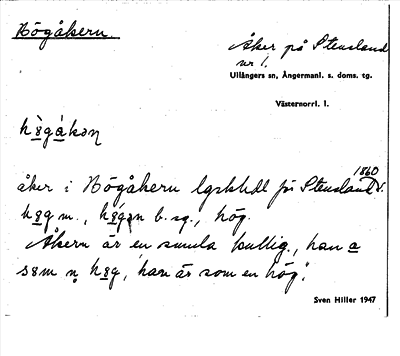 Högåkern
Åker på Stensland
nr 1.
Ullångers sn, Ångermanl. s. doms. tg.
Västernorrl. l.
åker i Högåkern lgskhdl för Stensland 1860
m., b. sg., hög.
Åkern är en smula kullig, han
, "han är som en hög".
Sven Hiller 1947